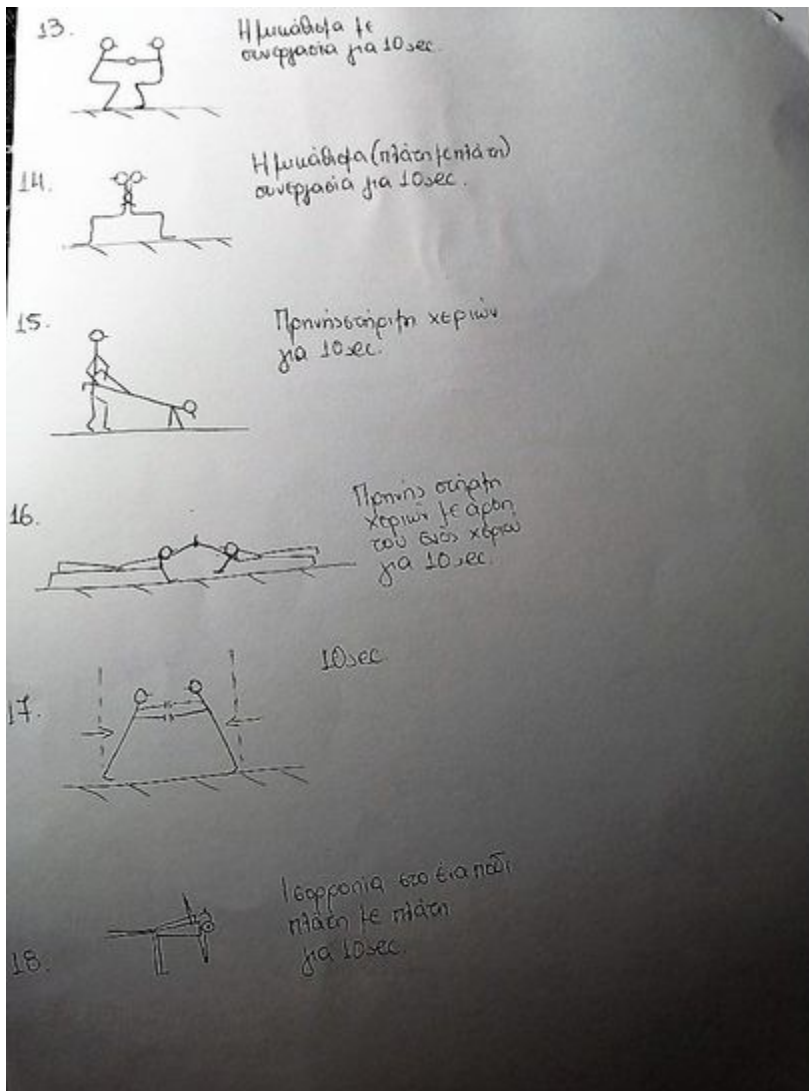 13.
Ημικάθισμα με
συνεργασία για 10sec.
14.
Ημικάθισμα (πλάτη με πλάτη)
συνεργασία για 10sec.
15.
Πρηνής στήριξη χεριών
για 10sec.
16.
Πρηνής στήριξη
χεριών με άρση
του ενός χεριού
για 10sec.
17.
10sec
18.
Ισορροπία στο ένα πόδι
πλάτη με πλάτη
για 10sec.